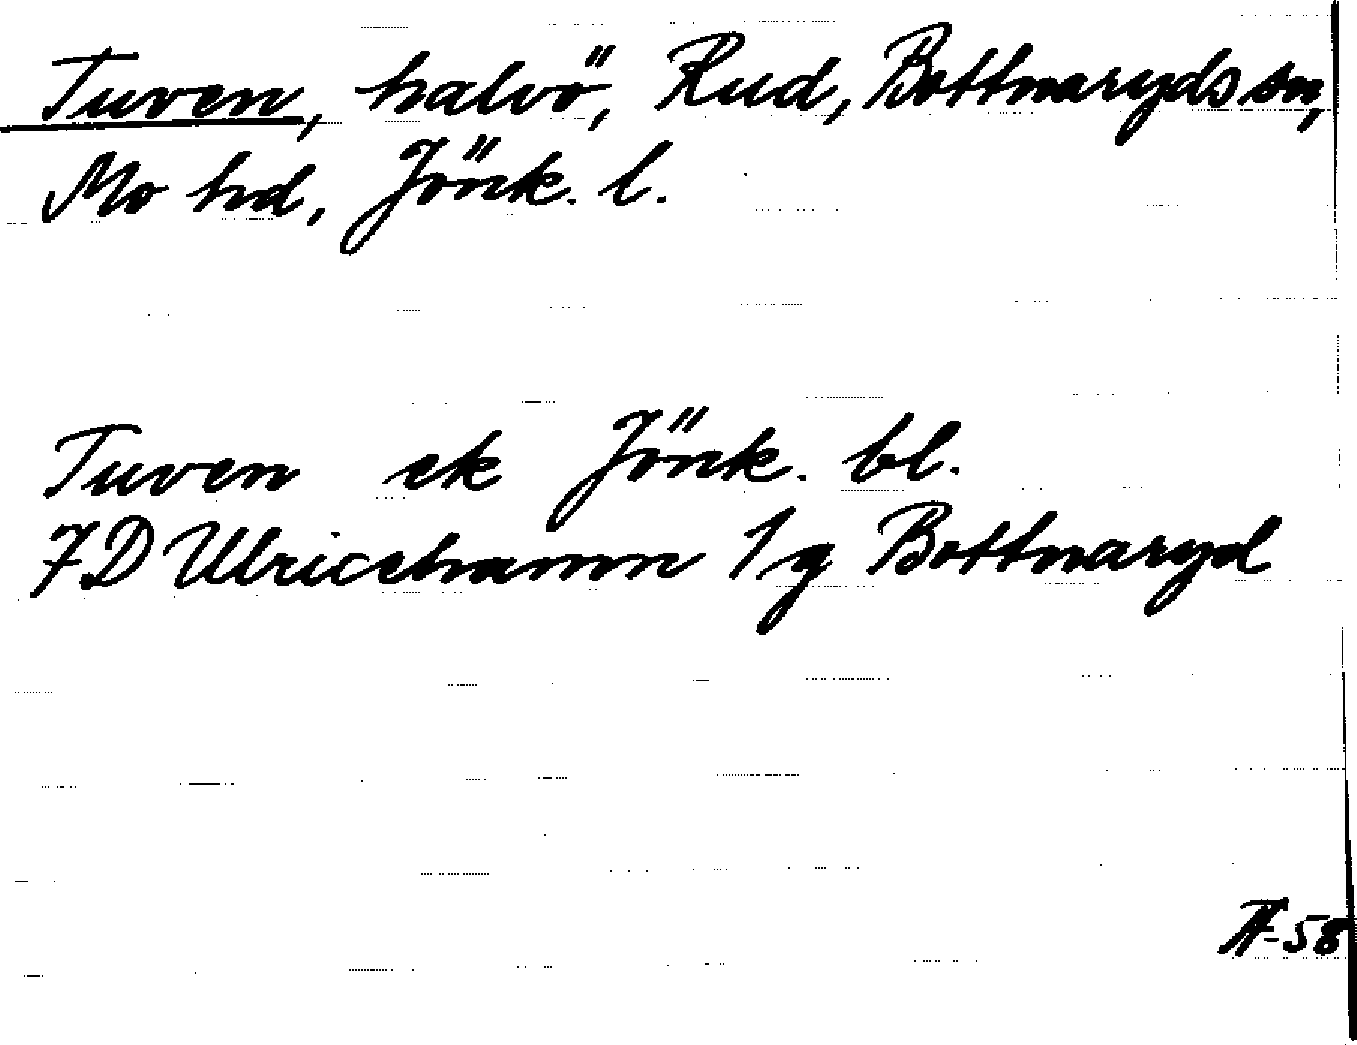 Tuven, halvö, Rud, Bottnaryds sn,
Mo hd, Jönk. l.
Tuven ek Jönk. bl.
7D Ulricehamn 1g Bottnaryd